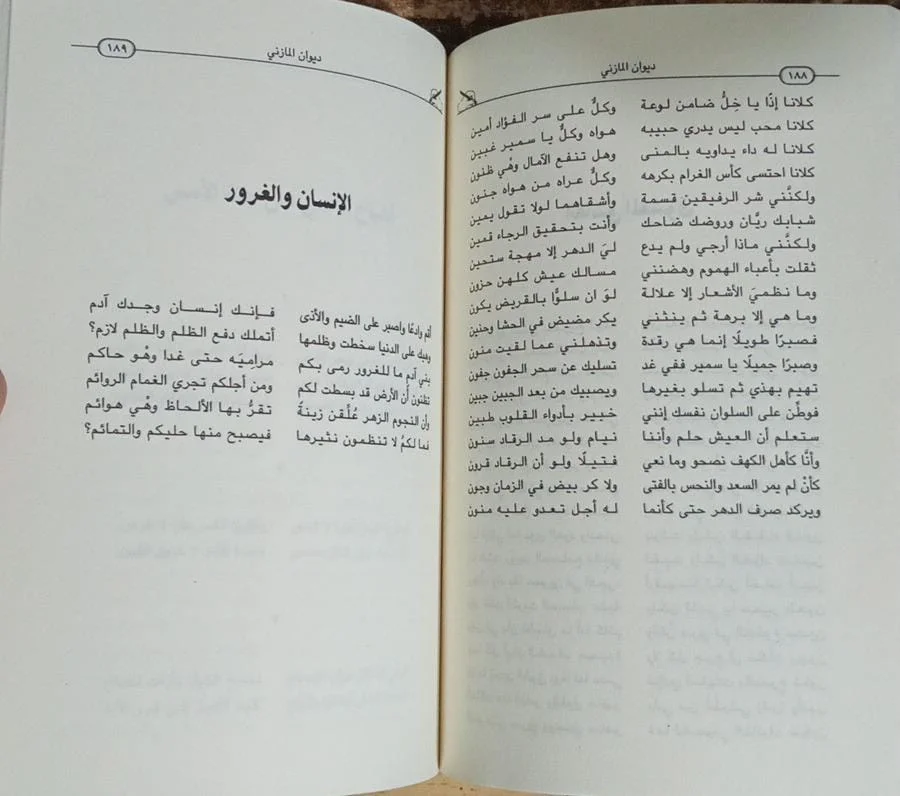 ١٨٨
ديوان المازني
كلانا إذًا يا خِلُّ ضامن لوعة وكلٌّ على سر الفؤاد أمين
كلانا محب ليس يدري حبيبه هواه وكلٌّ يا سمير غبين
كلانا له داء يداويه بالمنى وهل تنفع الآمال وهْي ظنون
كلانا احتسى كأس الغرام بكرهه وكلٌّ عراه من هواه جنون
ولكنَّني شر الرفيقين قسمة وأشقاهما لولا تقول يمين
شبابك ريَّان وروضك ضاحك وأنت بتحقيق الرجاء قمين
ولكنَّني ماذا أرجي ولم يدع ليَ الدهر إلا مهجة ستحين
ثقلت بأعباء الهموم وهضنني مسالك عيش كلهن حزون
وما نظميَ الأشعار إلا علالة لوَ ان سلوًّا بالقريض يكون
وما هي إلا برهة ثم ينثني يكر مضيض في الحشا وحنين
فصبرًا طويلًا إنما هي رقدة وتذهلني عما لقيت منون
وصبرًا جميلًا يا سمير ففي غد تسليك عن سحر الجفون جفون
تهيم بهذي ثم تسلو بغيرها ويصبيك من بعد الجبين جبين
فوطِّن على السلوان نفسك إنني خبير بأدواء القلوب طبين
ستعلم أن العيش حلم وأننا نيام ولو مد الرقاد سنون
وأنَّا كأهل الكهف نصحو وما نعي فتيلًا ولو أن الرقاد قرون
كأنْ لم يمر السعد والنحس بالفتى ولا كر بيض في الزمان وجون
ويركد صرف الدهر حتى كأنما له أجل تعدو عليه منون
١٨٩
ديوان المازني
الإنسان والغرور
أقم وادعًا واصبر على الضيم والأذى فإنك إنسان وجدك آدم
وهبك على الدنيا سخطت وظلمها أتملك دفع الظلم والظلم لازم؟
بني آدم ما للغرور رمى بكم مراميَه حتى غدا وهْو حاكم
تظنون أن الأرض قد بسطت لكم ومن أجلكم تجري الغمام الروائم
وأن النجوم الزهر عُلِّقن زينةً تقرُّ بها الألحاظ وهْي هوائم
فما لكمُ لا تنظمون نثيرها فيصبح منها حليكم والتمائم؟